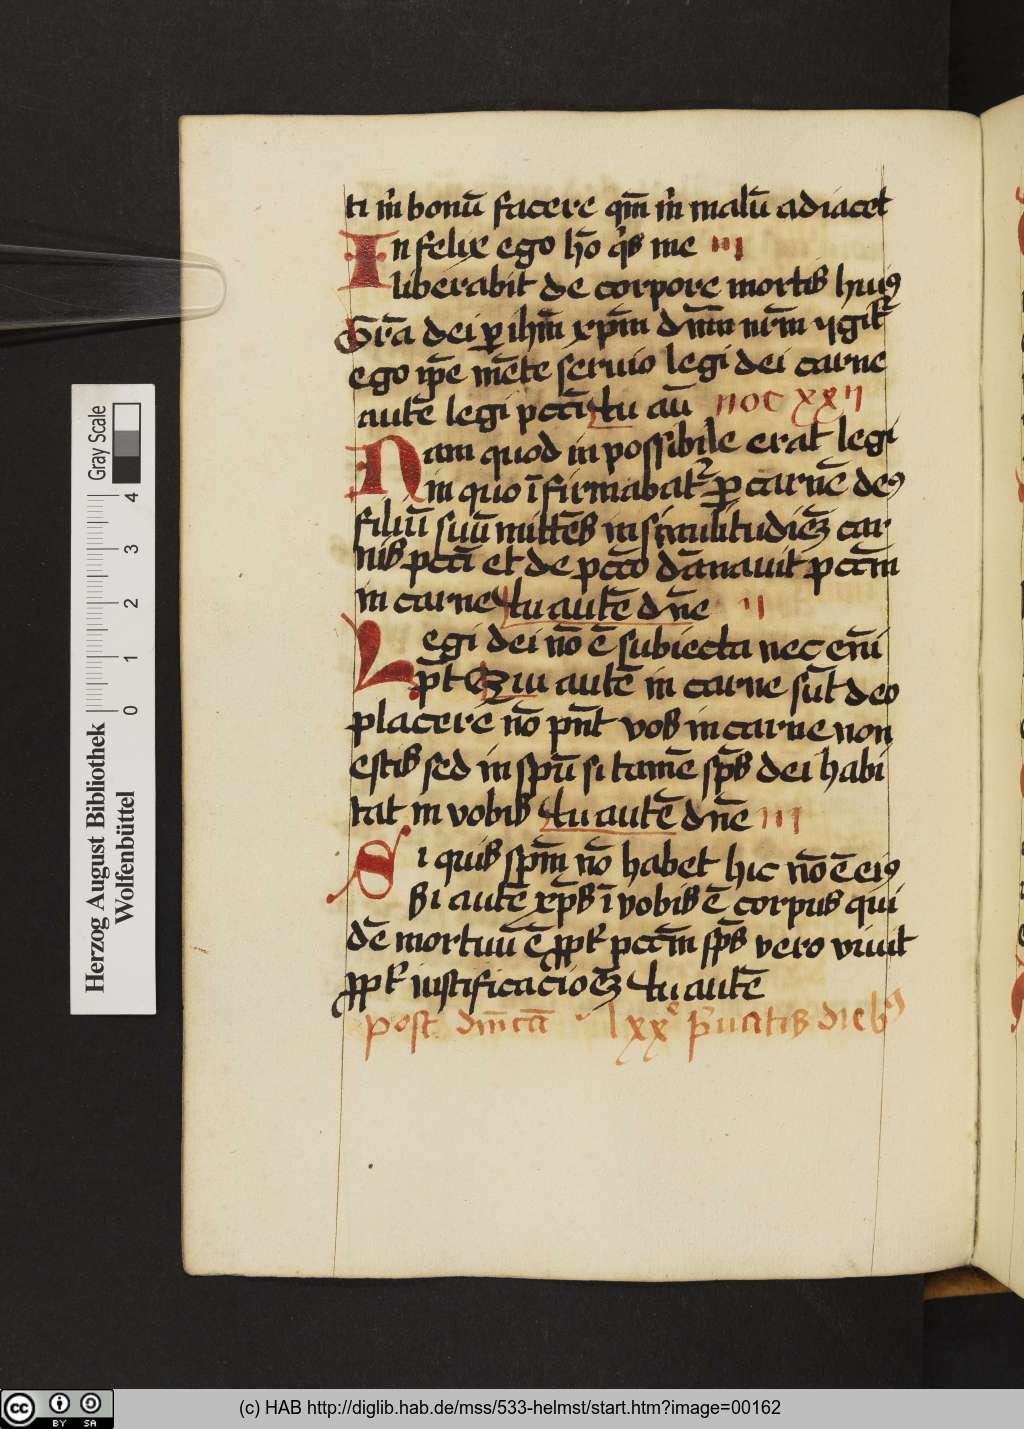 ti m̄ bonū facere qm̄ m̄ malū adiacet
In felix ego hō q̇s me iii
liberabit de corpore mortis huiꝯ
Gr̄a dei ꝑ ihm̄ xpm̄ dnm̄ nr̄m igit᷑
ego ip̄e mēte seruio legi dei carne
autē legi pctī tu aū noc xxii
Nam quod inpossibile erat legi
in quo īfirmabat᷑ ꝑ carnē deꝯ
filiū suū mittēs in similitudieꝫ car
nis pctī et de pctō dānauit pctm̄
in carne tu autē dn̄e ii
Legi dei nō ē subiecta nec enī
pt̄ Qui autē in carne sūt deo
placere nō pn̄t vos in carne non
estis sed in spū si tamē sp̄s dei habi
tat in vobis tu autē dn̄e iii
Si quis spm̄ nō habet hic nō ē eiꝯ
Si autē xp̄s ī vobis ē corpus qui
dē mortuū ē ꝓpt᷑ pctm̄ sp̄s vero viuit
ꝓpt᷑ iustificacioēꝫ tu autē
post dn̄icā lxxᵃ p̄uatis diebꝯ
Herzog August Bibliothek
Wolfenbüttel
Gray Scale
0 1 2 3 4
cc BY SA
(c) HAB http://diglib.hab.de/mss/533-helmst/start.htm?image=00162